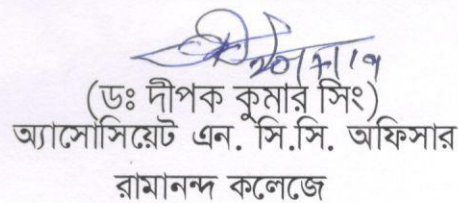 20/7/19
(ডঃ দীপক কুমার সিং)
অ্যাসোসিয়েট এন. সি.সি. অফিসার
রামানন্দ কলেজে